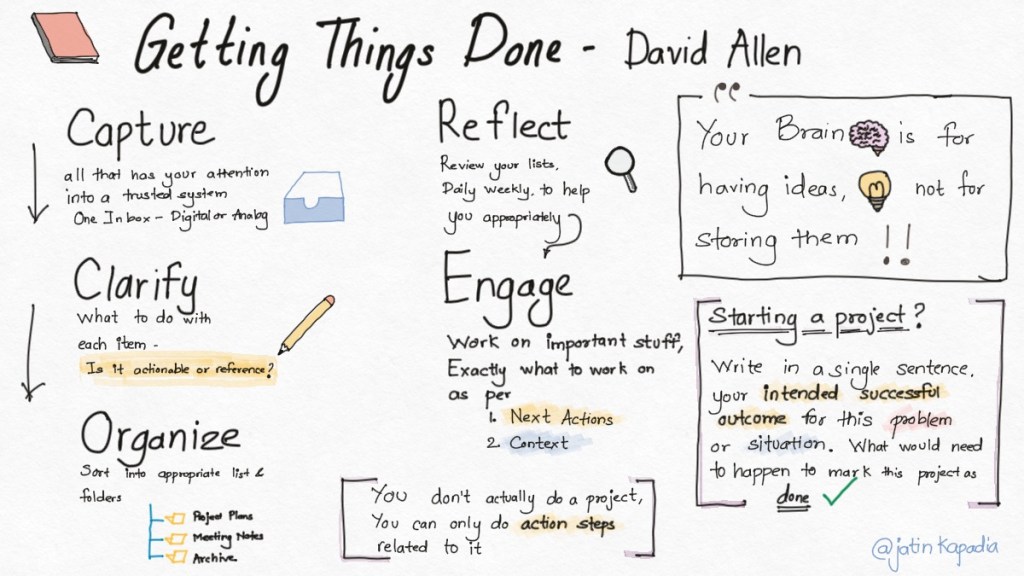 Getting Things Done - David Allen
Capture
all that has your attention
into a trusted system
One Inbox - Digital or Analog
Clarify
What to do with
each item -
Is it actionable or reference?
Organize
Sort into appropriate list &
folders
Project Plans
Meeting Notes
Archive
Reflect
Review your lists,
Daily weekly, to help
you appropriately
Engage
Work on important stuff,
Exactly what to work on
as per
1. Next Actions
2. Context
You don't actually do a project,
You can only do action steps
related to it
"
Your Brain is for
having ideas, not for
storing them !!
Starting a project?
Write in a single sentence,
your intended successful
outcome for this problem
or situation. What would need
to happen to mark this project as
done
@jatinkapadia